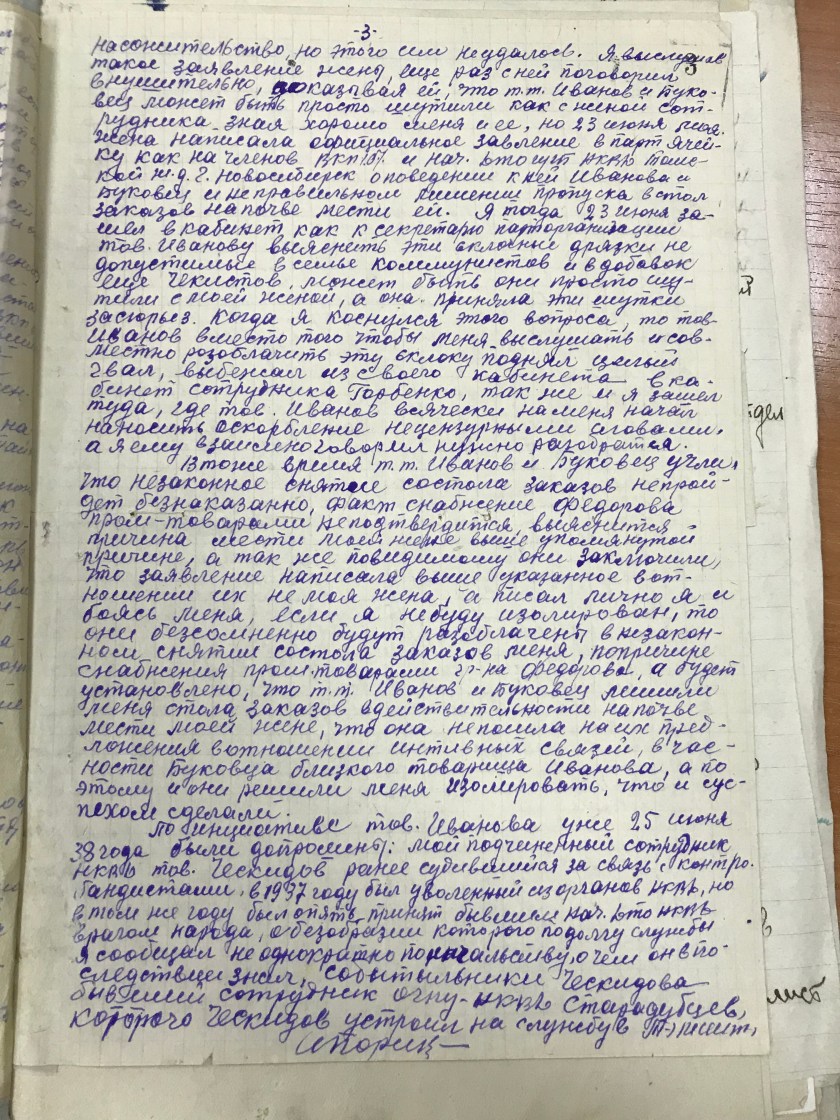 -3-
3
насожительство, но этого им неудалось. Я выслушав
такое заявление жены, еще раз с ней поговорил
внушительно, доказывая ей, что т.т. Иванов и Буко-
вец может быть просто шутили как с женой сот-
рудника зная хорошо меня и ее, но 23 июня моя
жена написала официальное завление в парт ячей-
ку как на членов ВКП(б) и нач. НКВД Томс-
кой ж.д. г. Новосибирск о поведении к ней Иванова и
Буковец и неправильном лишении пропуска в стол
заказов на почве мести ей. Я тогда 23 июня за-
шел в кабинет, как к секретарю парторганизации
тов. Иванову выяснить эти склочные дрязки не
допустимые в семье коммунистов и вдобавок
еще чекистов, может быть они просто шу-
тили с моей женой, а она приняла эти шутки
засюрьез. Когда я коснулся этого вопроса, то тов-
Иванов вместо того чтобы меня выслушать и сов-
местно разоблачить эту склоку поднял целый
гвал, выбежал из своего кабинета в ка-
бинет сотрудника Горбенко, так же и я зашел
туда, где тов. Иванов всячески на меня начал
наносить оскорбление нецензурными словами,
а я ему взаимно говорил нужно разобратся.
В тоже время т.т. Иванов и Буковец учли,
что незаконное снятие состола заказов непрой-
дет безнаказанно, факт снабжение Федорова
пром-товарами неподтвердится, выяснится
причина мести моей жене выше упомянутой
причине, а так же повидимому они заключили,
что заявление написала выше указанное в от-
ношении их не моя жена, а писал лично я и
боясь меня, если я небуду изолирован, то
они безсомненно будут разоблачены в незакон-
ном снятии состола заказов меня, попричине
снабжения пром.товарами гр-на Федорова, а будет
установлено, что т.т. Иванов и Буковец лишили
меня стола заказов вдействительности на почве
мести моей жене, что она непошла на их пред-
ложения вотношении интивных связей, в час-
ности Буковца близкого товарища Иванова, а по
этому и они решили меня изолировать, что и сус-
пехом сделали.
По инциативе тов. Иванова уже 25 июня
38 года были допрошены: мой подчиненный сотрудник
НКВД тов. Ческидов ранее судившийся за связь с контро-
бандисташи, в 1937 году был уволенный из органов НКВД, но
в том же году был опять принят бывшим нач. НКВД
врагом народа, о безобразии которого подолгу службы
я сообщал не однократно по начальству, о чем он впо-
следствии знал, событыльники Ческидова
бывший сотрудник ОГПУ-НКВД Старадубцев,
которого Ческидов устроил на службу в
дел
лист
в